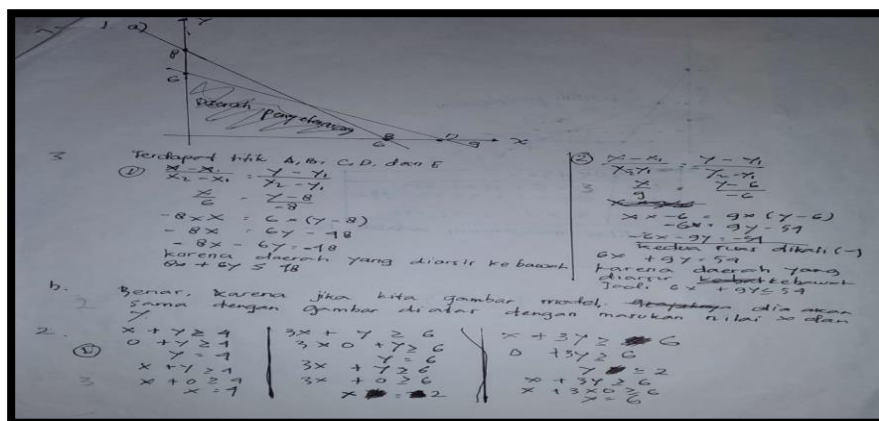 1. a)
Y
8
6
Daerah penyelesaian
6
B
D
9
x
3
Terdapat titik A, B, C, D, dan E
① x - x₁ / x₂ - x₁ = y - y₁ / y₂ - y₁
x / 6 = y - 8 / -8
-8 x X = 6 x (y - 8)
-8x = 6y - 48
-8x - 6y = -48
Karena daerah yang diarsir kebawah
8x + 6y ≤ 48
② x - x₁ = y - y₁
3
x / 9 = y - 6 / -6
x x -6 = 9 x (y - 6)
-6x = 9y - 54
-6x - 9y = -54
Kedua ruas dikali (-)
6x + 9y = 54
Karena daerah yang
diarsir kebawah
Jadi 6x + 9y ≤ 54
b. Benar, karena jika kita gambar model, dia akan
2
sama dengan gambar diatas dengan masukan nilai x dan
y
2.
①
3
x + y ≥ 4
0 + y ≥ 4
y = 4
x + y ≥ 4
x + 0 ≥ 4
x = 4
3x + y ≥ 6
3 x 0 + y ≥ 6
y = 6
3x + y ≥ 6
3x + 0 ≥ 6
x = 2
x + 3y ≥ 6
0 + 3y ≥ 6
y = 2
x + 3y ≥ 6
x + 3x0 ≥ 6
x = 6